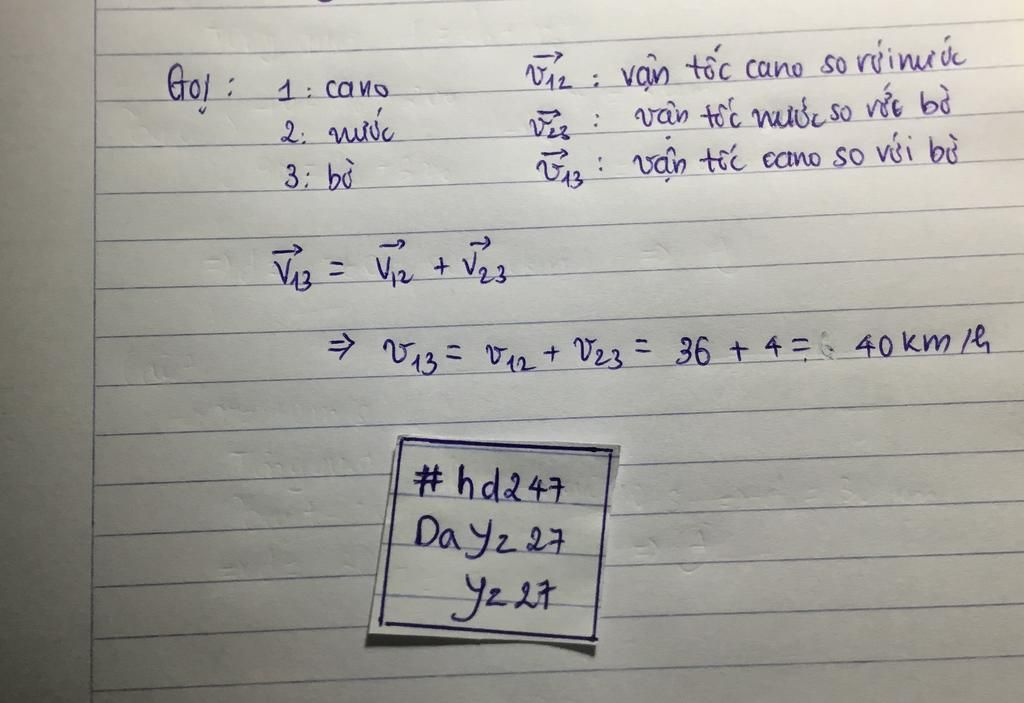 Gọi : 1 : cano v₁₂ : vận tốc cano so với nước
2 : nước v₂₃ : vận tốc nước so với bờ
3 : bờ v₁₃ : vận tốc cano so với bờ
v₁₃ = v₁₂ + v₂₃
⇒ v₁₃ = v₁₂ + v₂₃ = 36 + 4 = 40 km/h
# hd247
Da yz 27
yz 27